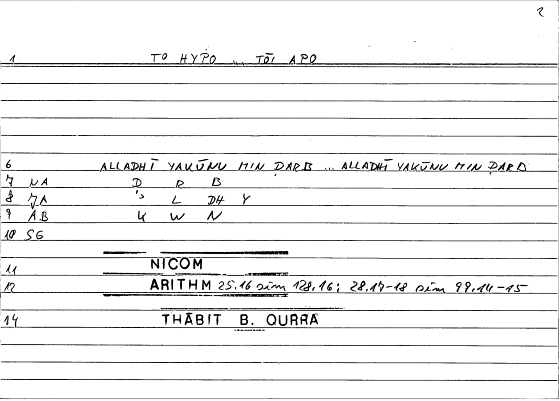 2
1 TO HYPO ... TŌI APO
6 ALLADHĪ YAKŪNU MIN ḌARB ... ALLADHĪ YAKŪNU MIN ḌARB
7 NA D R B
8 JA ʾ L DH Y
9 AB K W N
10 SG
11 NICOM
12 ARITHM 25.16 sim 128.16; 28.17-18 sim 99.14-15
14 THĀBIT B. QURRA